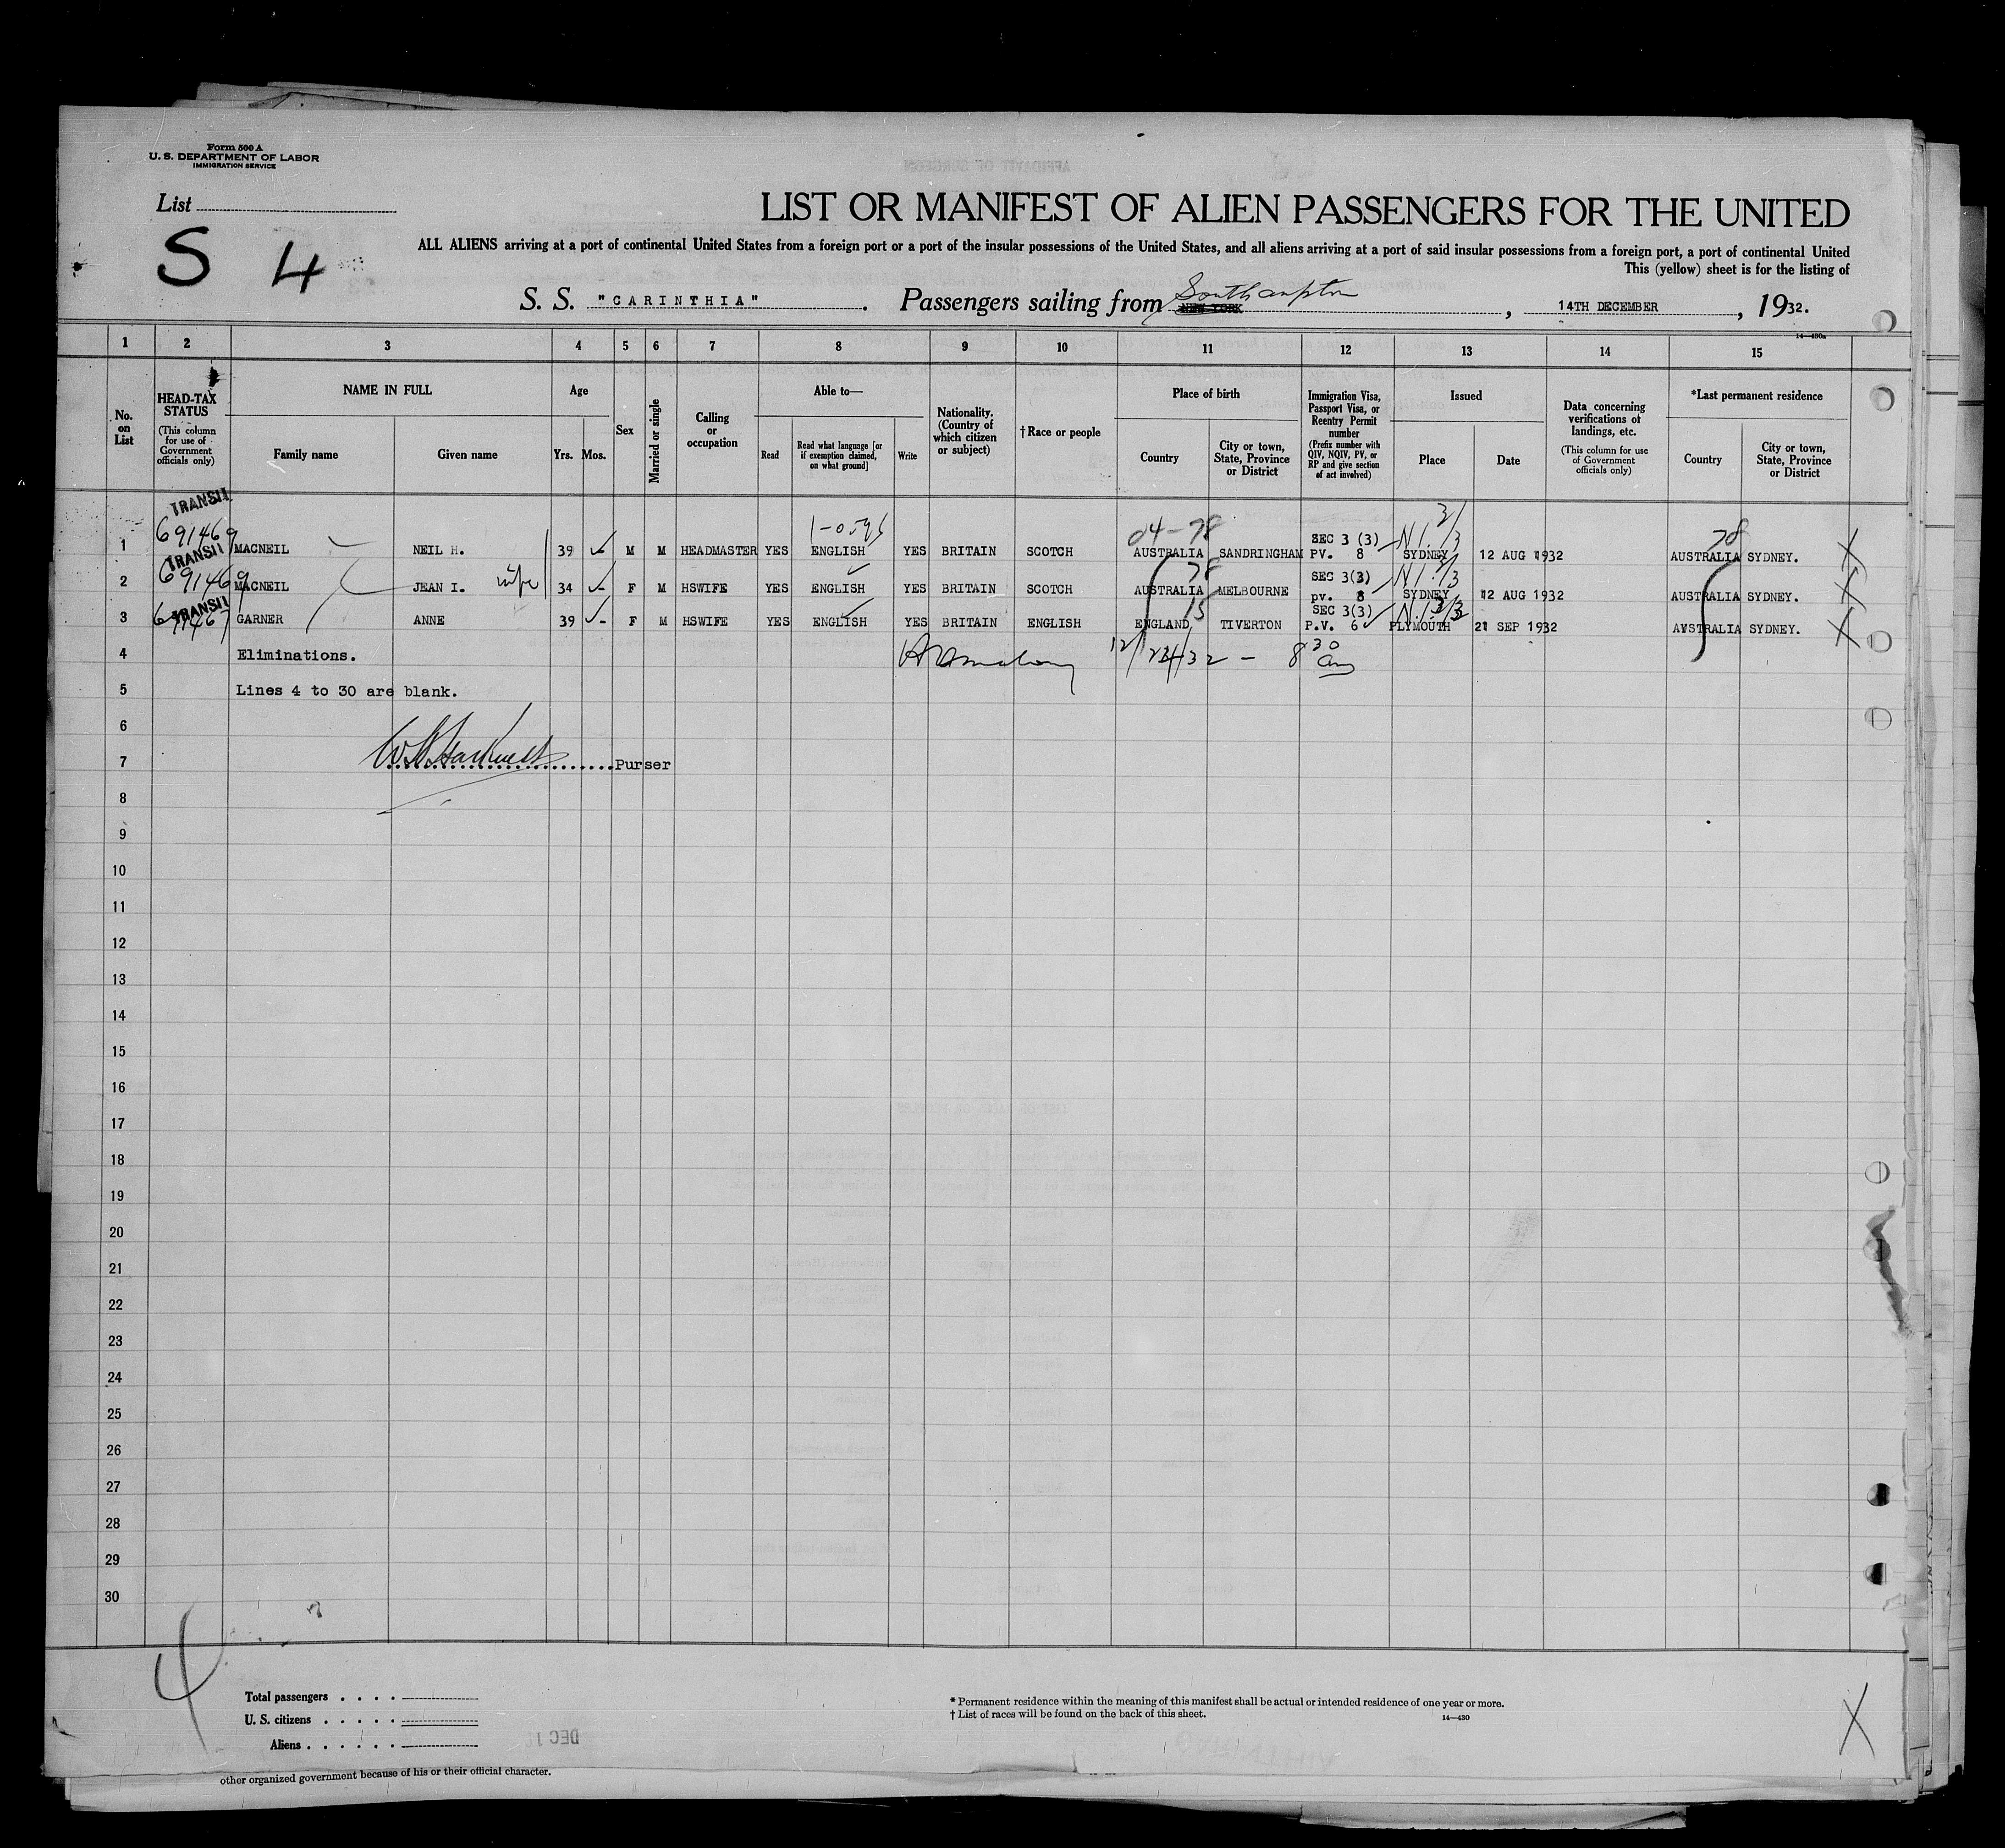 Form 500 A
U. S. DEPARTMENT OF LABOR
IMMIGRATION SERVICE
List
S 4
LIST OR MANIFEST OF ALIEN PASSENGERS FOR THE UNITED
ALL ALIENS arriving at a port of continental United States from a foreign port or a port of the insular possessions of the United States, and all aliens arriving at a port of said insular possessions from a foreign port, a port of continental United
This (yellow) sheet is for the listing of
S. S. "CARINTHIA". Passengers sailing from Southampton NEW YORK, 14TH DECEMBER, 1932.
14—430a
1 2 3 4 5 6 7 8 9 10 11 12 13 14 15
No. on List
HEAD-TAX STATUS
(This column for use of Government officials only)
NAME IN FULL
Family name
Given name
Age
Yrs. Mos.
Sex
Married or single
Calling or occupation
Able to—
Read
Read what language [or if exemption claimed, on what ground]
Write
Nationality. (Country of which citizen or subject)
†Race or people
Place of birth
Country
City or town, State, Province or District
Immigration Visa, Passport Visa, or Reentry Permit number
(Prefix number with QIV, NQIV, PV, or RP and give section of act involved)
Issued
Place
Date
Data concerning verifications of landings, etc.
(This column for use of Government officials only)
*Last permanent residence
Country
City or town, State, Province or District
TRANSIT
691469 04-78 SEC 3 (3) 78
1 MACNEIL NEIL H. 39 M M HEADMASTER YES ENGLISH YES BRITAIN SCOTCH AUSTRALIA SANDRINGHAM PV. 8 SYDNEY 12 AUG 1932 AUSTRALIA SYDNEY.
TRANSIT
691469 78 SEC 3(3)
2 MACNEIL JEAN I. wife 34 F M HSWIFE YES ENGLISH YES BRITAIN SCOTCH AUSTRALIA MELBOURNE pv. 8 SYDNEY 12 AUG 1932 AUSTRALIA SYDNEY.
TRANSIT
691467 15 SEC 3(3)
3 GARNER ANNE 39 F M HSWIFE YES ENGLISH YES BRITAIN ENGLISH ENGLAND TIVERTON P.V. 6 PLYMOUTH 21 SEP 1932 AUSTRALIA SYDNEY.
4 Eliminations. 12/24/32 - 8 30 am
5 Lines 4 to 30 are blank.
6
7 Purser
8
9
10
11
12
13
14
15
16
17
18
19
20
21
22
23
24
25
26
27
28
29
30
4
Total passengers
U. S. citizens
Aliens
* Permanent residence within the meaning of this manifest shall be actual or intended residence of one year or more.
† List of races will be found on the back of this sheet.
14—430
X
other organized government because of his or their official character.